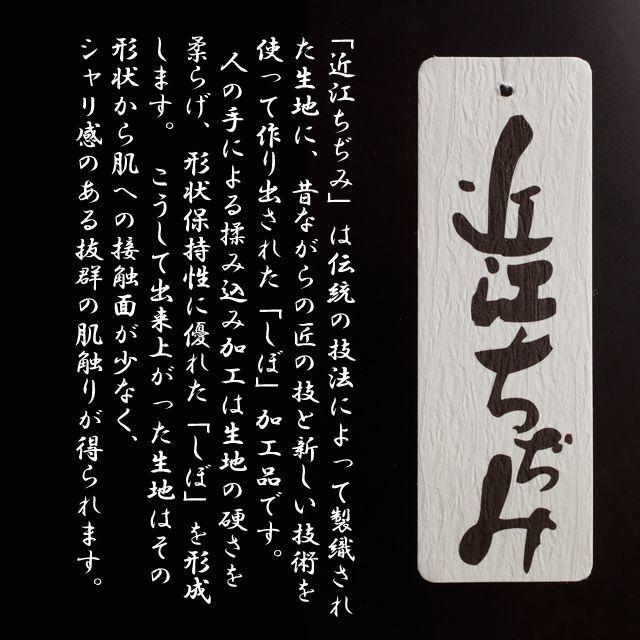 近江ちぢみ
「近江ちぢみ」は伝統の技法によって製織され
た生地に、昔ながらの匠の技と新しい技術を
使って作り出された「しぼ」加工品です。
人の手による揉み込み加工は生地の硬さを
柔らげ、形状保持性に優れた「しぼ」を形成
します。こうして出来上がった生地はその
形状から肌への接触面が少なく、
シャリ感のある抜群の肌触りが得られます。